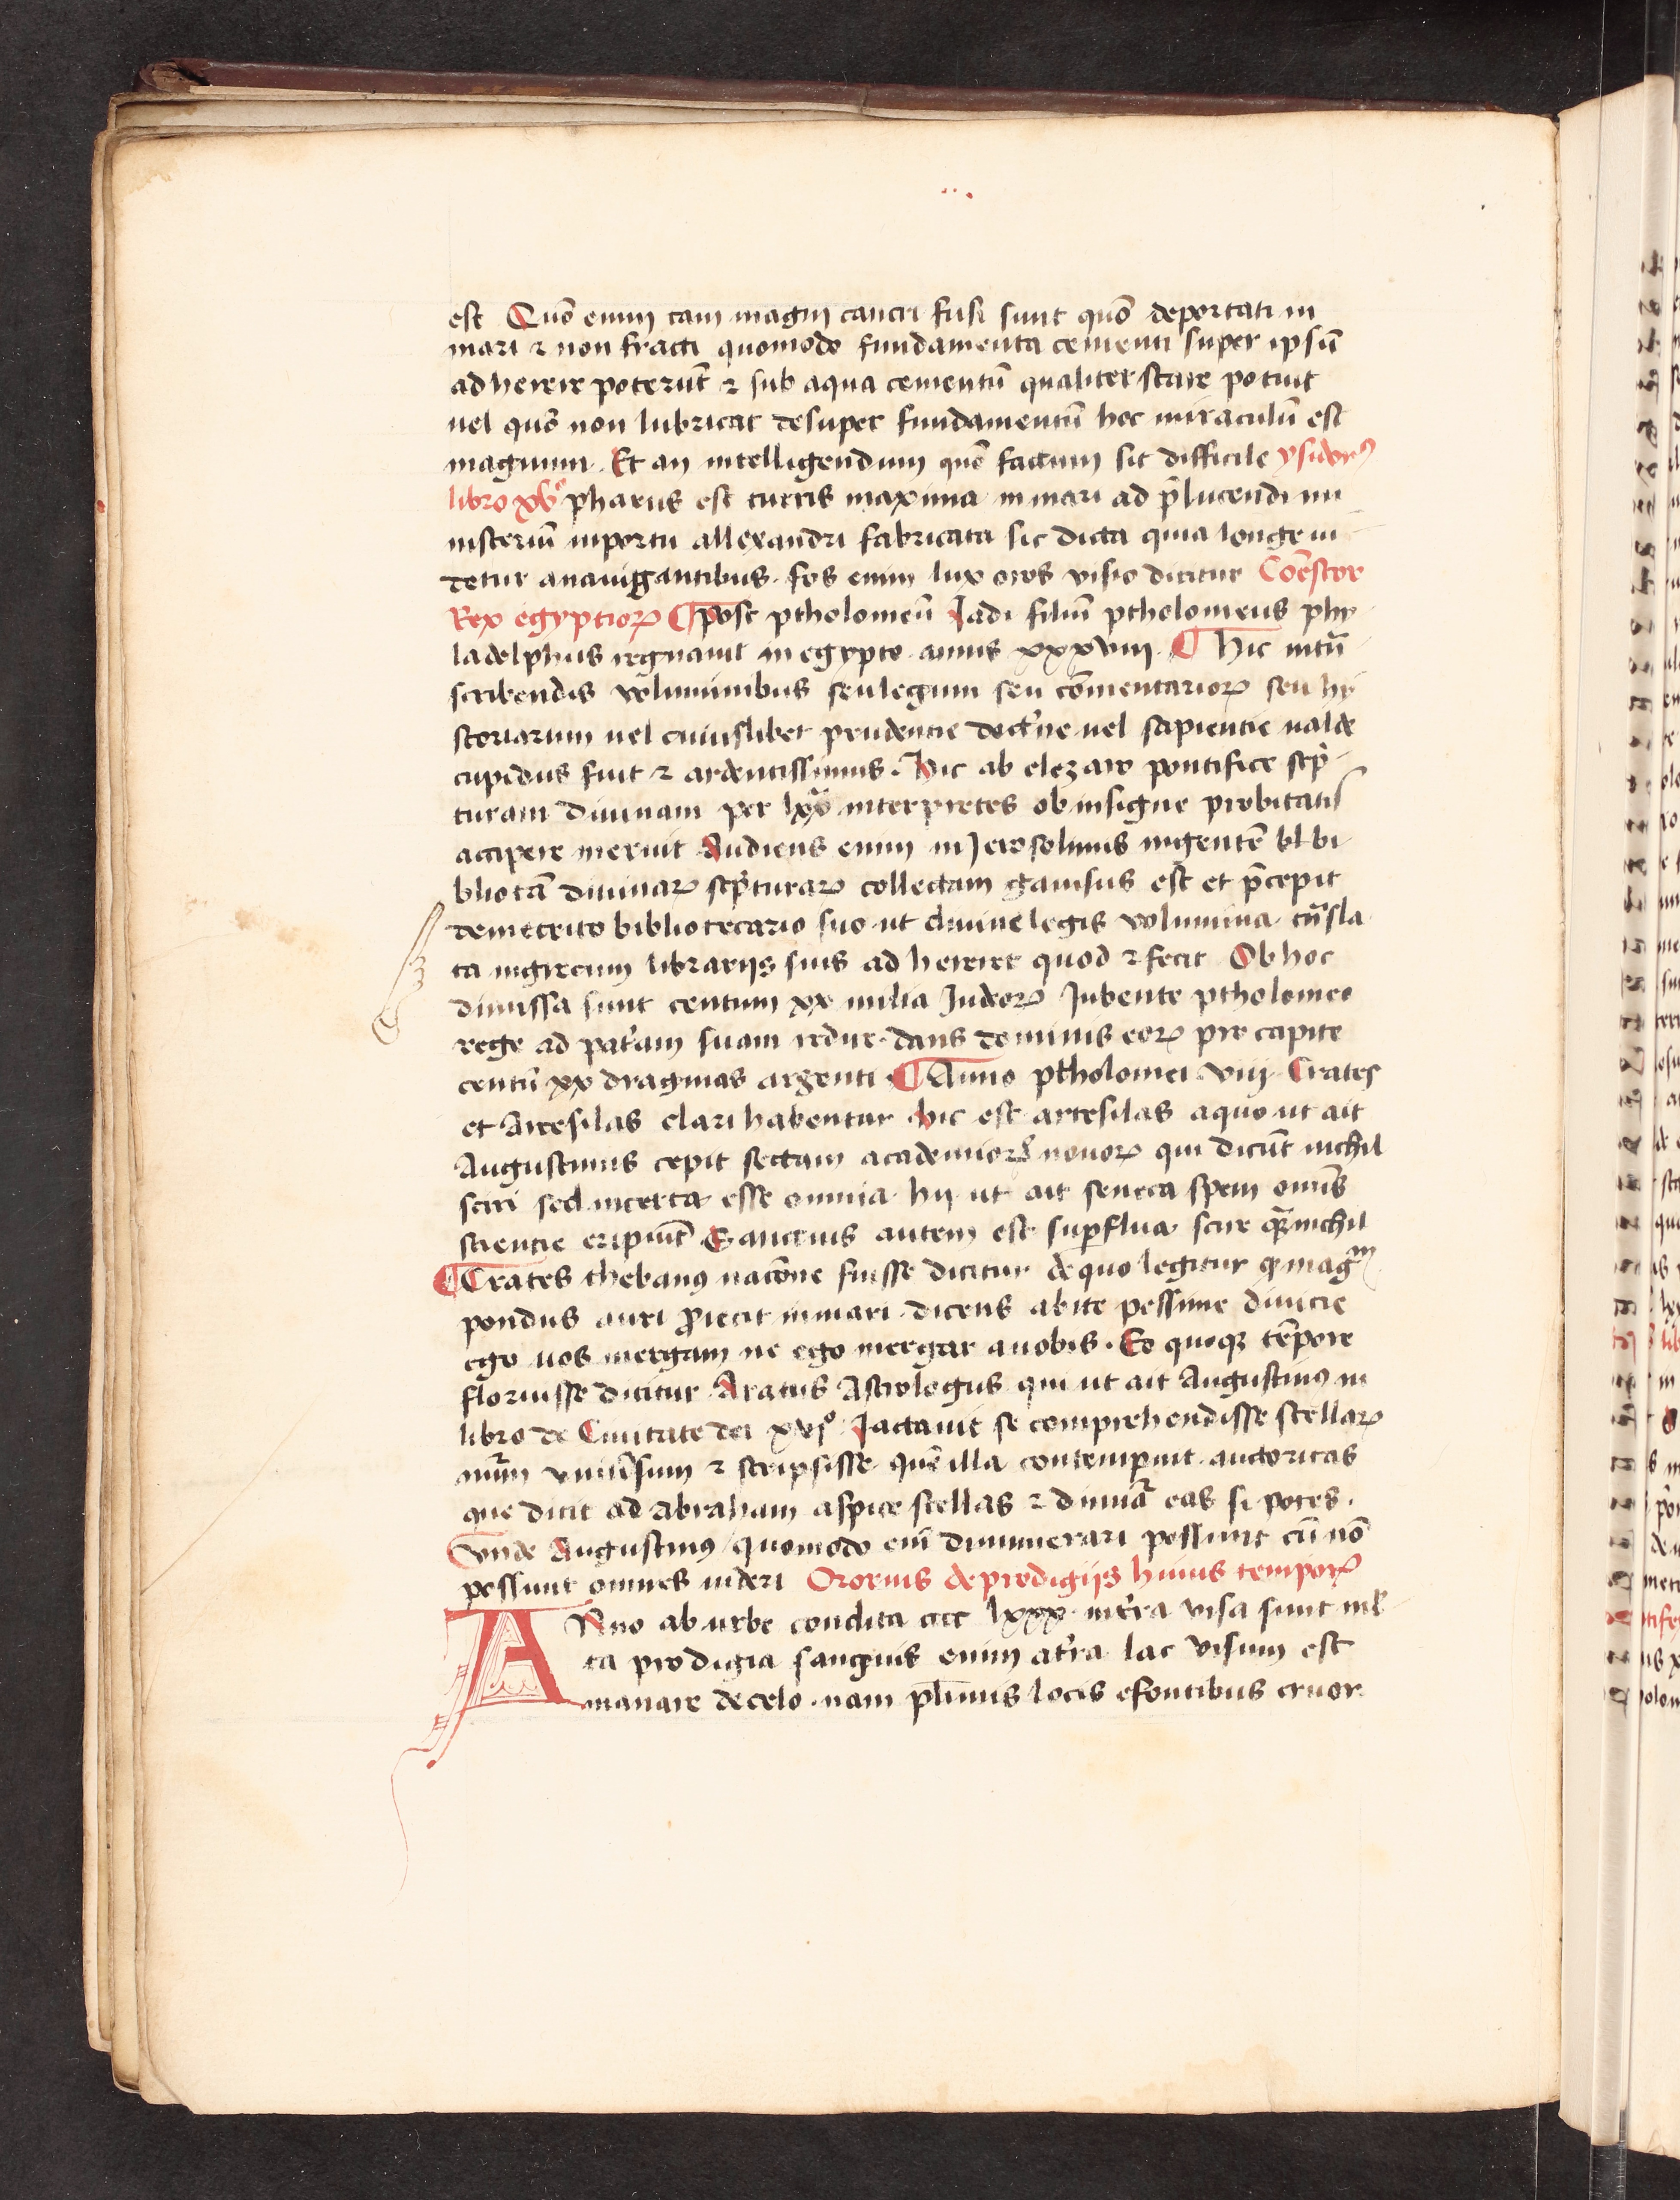 est Quō enim tam magni cancri fusi sunt quō deportati in
mari ⁊ non fracti quomodo fundamenta cementi super ipsū
ad herere poterūt ⁊ sub aqua cementū qualiter stare potuit
uel quō non lubricat desuper fundamentū hoc miraculū est
magnum. Et an intelligendum quō factum sit difficile ysidorꝰ
libro xvͦ pharus est turris maxima in mari ad p̄lucendi mi
nisteriū inportu allexandri fabricata sic dicta quia longe ui
detur anauiggantibus. fos enim lux oros visio dicitur Coēstor
Rex egyptioꝝ ¶ post ptholomeū Iadi filiū ptholomeus phy
ladelphus regnauit in egypto annis xxxviij. ¶ Hic intā
scribendis voluminibus seu legum seu cōmentarioꝝ seu hy
storiarum uel cuiuslibet prudentie doctͥne uel sapientie ualde
cupidus fuit ⁊ ardentissimus. Hic ab elezaro pontifice scͥp
turam diuinam per lxxᵃ interpretes ob insigne probitatis
accipere meruit Audiens enim in Ierosolimis ingentē bl bi
bliotā diuinaꝝ scͥpturaꝝ collectam gauisus est et p̄cepit
demetrito bibliotecario suo ut diuine legis volumina tͣnsla
ta ingrecum librarijs suis ad hereret quod ⁊ fecit Ob hoc
dimissa sunt centum xx milia Iudeoꝝ Iubente ptholomeo
rege ad patͥam suam redire. dans dominis eoꝝ pro capite
centū xx dragmas argenti. ¶ Anno ptholomei viij Crates
et Arcesilas clari habentur hic est artesilas aquo ut ait
Augustinus cepit sectam academioꝝ nouoꝝ qui dicūt nichil
sciri sed incerta esse omnia hij ut ait seneca spem omīs
scientie eripiūt Sanctius autem est supͥflua scire qͣꝫ nichil
¶ Crates thebanꝰ nacōne fuisse dicitur de quo legitur ꝙ magͫ
pondus auri ꝓiecit in mari. dicens abite pessime diuicie
ego uos mergam ne ego mergar auobis. Eo quoqꝫ tēpore
floruisse dicitur Aratus Astrologus qui ut ait Augustinꝰ in
libro de Ciuitate dei xvjͦ. Iactauit se comprehendisse stellaꝝ
nūm vniuͥsum ⁊ scripsisse quē illa contempnit auctoritas
que dicit ad Abraham aspice stellas ⁊ dinūͣ eas si potes.
Vnde Augustinꝰ quomodo eīi dinumerari possunt cū nō
possunt omnes uideri Ororius de prodigijs huius tempoꝝ
ANno ab urbe condita cccc lxxx. intͥra visa sunt ml
ta prodigia sanguis enim atͥra lac visum est
manare decelo. nam plͥimis locis efontibus cruor.